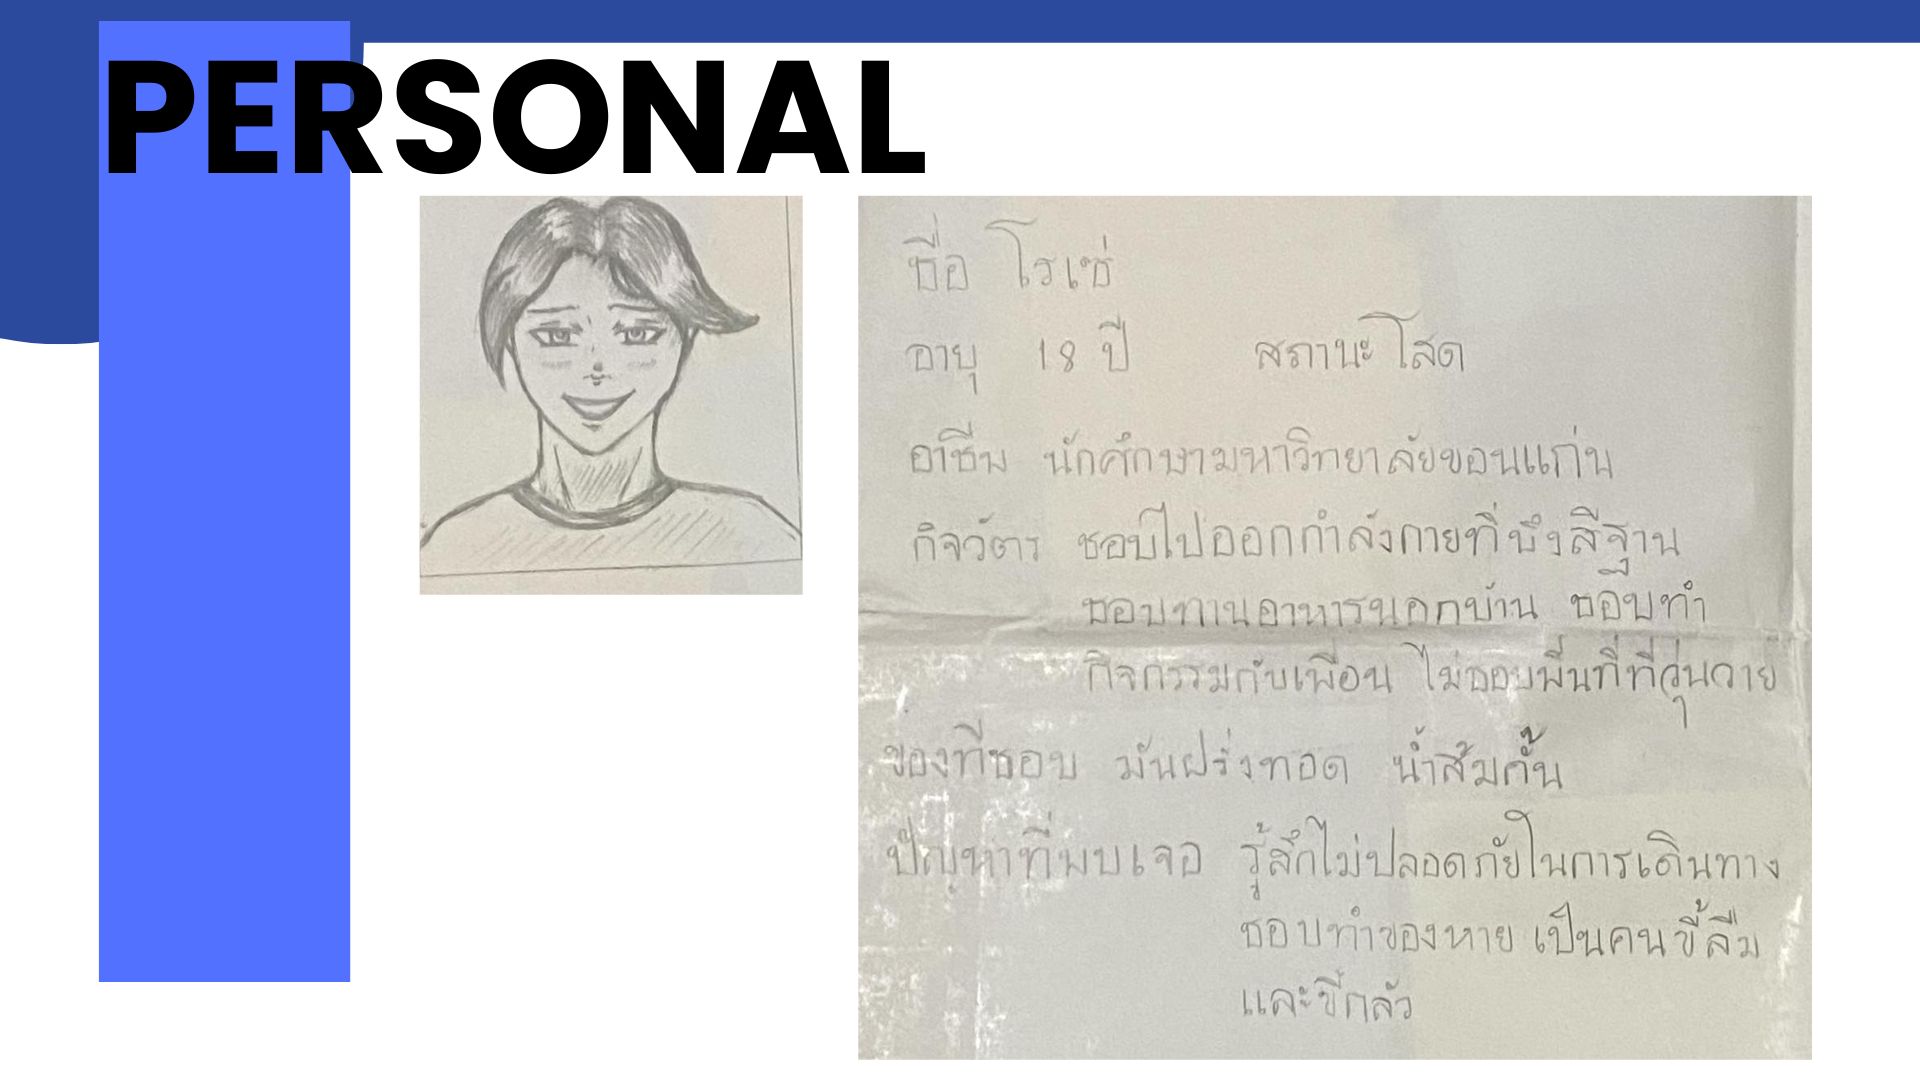 PERSONAL
ชื่อ โรเซ่
อายุ 18 ปี สถานะ โสด
อาชีพ นักศึกษามหาวิทยาลัยขอนแก่น
กิจวัตร ชอบไปออกกำลังกายที่บึงสีฐาน
ชอบทานอาหารนอกบ้าน ชอบทำ
กิจกรรมกับเพื่อน ไม่ชอบพื้นที่ที่วุ่นวาย
ของที่ชอบ มันฝรั่งทอด น้ำส้มคั้น
ปัญหาที่พบเจอ รู้สึกไม่ปลอดภัยในการเดินทาง
ชอบทำของหาย เป็นคนขี้ลืม
และขี้กลัว